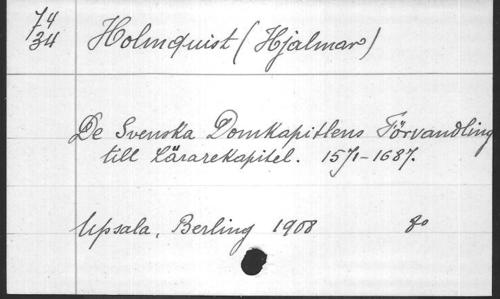 74
34
Holmquist (Hjalmar)
De Svenska Domkapitlens Förvandling
till Lärarekapitel. 1571-1687.
Upsala, Berling 1908 8o